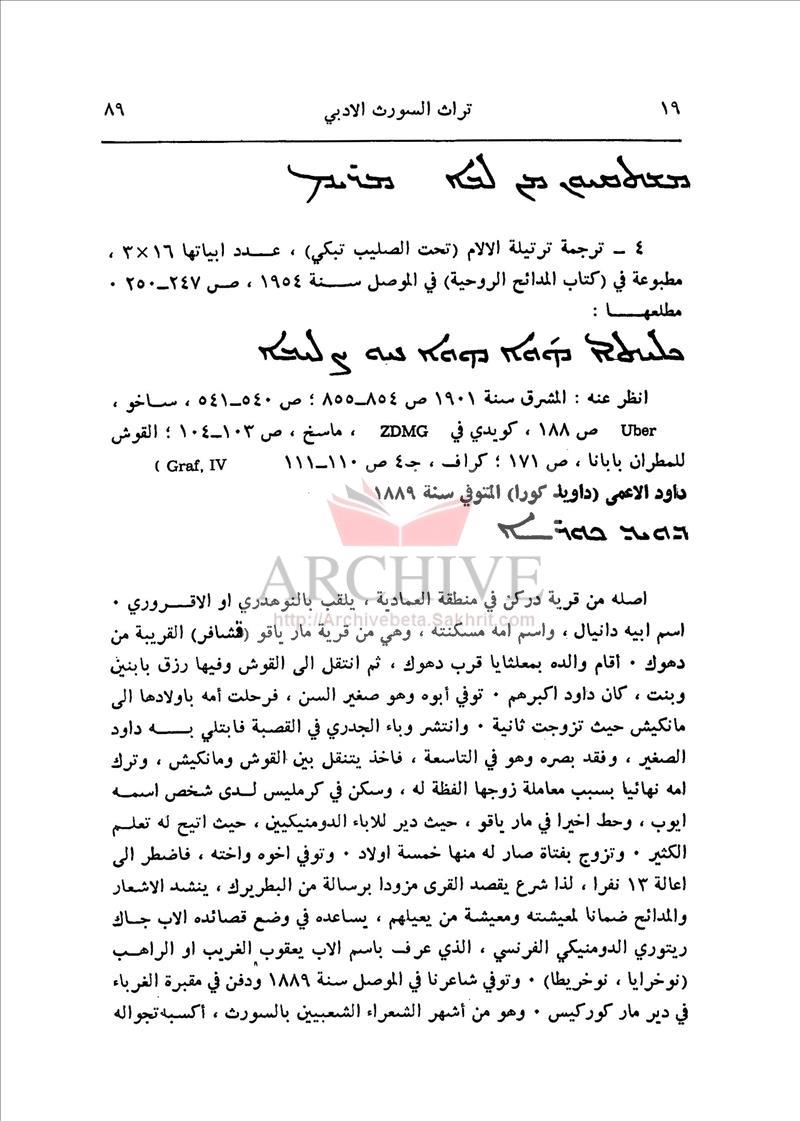 ١٩ تراث السورث الادبي ٨٩
ܡܢ ܠܒܐ
٤ ــ ترجمة ترتيلة الالام (تحت الصليب تبكي) ، عـــدد ابياتها ١٦×٣ ،
مطبوعة في (كتاب المدائح الروحية) في الموصل ســـنة ١٩٥٤ ، صـ ٢٤٧ــ٢٥٠ ٠
مطلعهـــا :
انظر عنه : المشرق سنة ١٩٠١ ص ٨٥٤ــ٨٥٥ ؛ ص ٥٤٠ــ٥٤١ ، ســاخو ،
Uber ص ١٨٨ ، كويدي في ZDMG ، ماسخ ، ص ١٠٣ــ١٠٤ ؛ القوش
للمطران بابانا ، ص ١٧١ ؛ كراف ، جـ٤ ص ١١٠ــ١١١ Graf, IV )
داود الاعمى (داويد كورا) المتوفي سنة ١٨٨٩
ܕܘܝܕ
ARCHIVE
http://Archivebeta.Sakhrit.com
اصله من قرية دركن في منطقة العمادية ، يلقب بالنوهدري او الاقـــروري ٠
اسم ابيه دانيال ، واسم امه مسكنته ، وهي من قرية مار ياقو (قشافر) القريبة من
دهوك ٠ أقام والده بمعلثايا قرب دهوك ، ثم انتقل الى القوش وفيها رزق بابنين
وبنت ، كان داود اكبرهم ٠ توفي أبوه وهو صغير السن ، فرحلت أمه باولادها الى
مانكيش حيث تزوجت ثانية ٠ وانتشر وباء الجدري في القصبة فابتلي بـــه داود
الصغير ، وفقد بصره وهو في التاسعة ، فاخذ يتنقل بين القوش ومانكيش ، وترك
امه نهائيا بسبب معاملة زوجها الفظة له ، وسكن في كرمليس لــدى شخص اسمــه
ايوب ، وحط اخيرا في مار ياقو ، حيث دير للاباء الدومنيكيين ، حيث اتيح له تعلــم
الكثير ٠ وتزوج بفتاة صار له منها خمسة اولاد ٠ وتوفي اخوه واخته ، فاضطر الى
اعالة ١٣ نفرا ، لذا شرع يقصد القرى مزودا برسالة من البطريرك ، ينشد الاشعار
والمدائح ضمانا لمعيشته ومعيشة من يعيلهم ، يساعده في وضع قصائده الاب جــاك
ريتوري الدومنيكي الفرنسي ، الذي عرف باسم الاب يعقوب الغريب او الراهــب
(نوخرايا ، نوخريطا) ٠ وتوفي شاعرنا في الموصل سنة ١٨٨٩ ودفن في مقبرة الغرباء
في دير مار كوركيس ٠ وهو من أشهر الشعراء الشعبيين بالسورث ، أكسبه تجواله